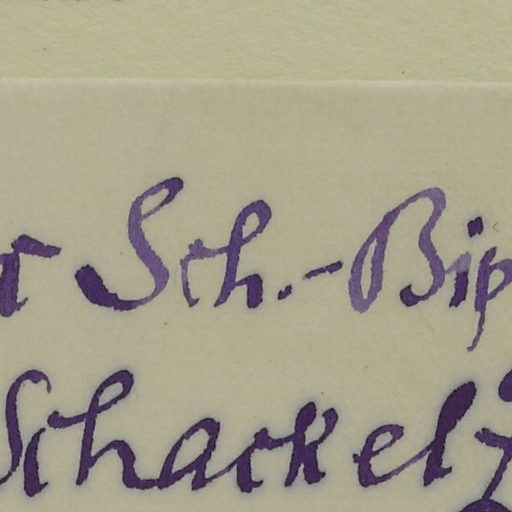 Sch.-Bip
Schackel